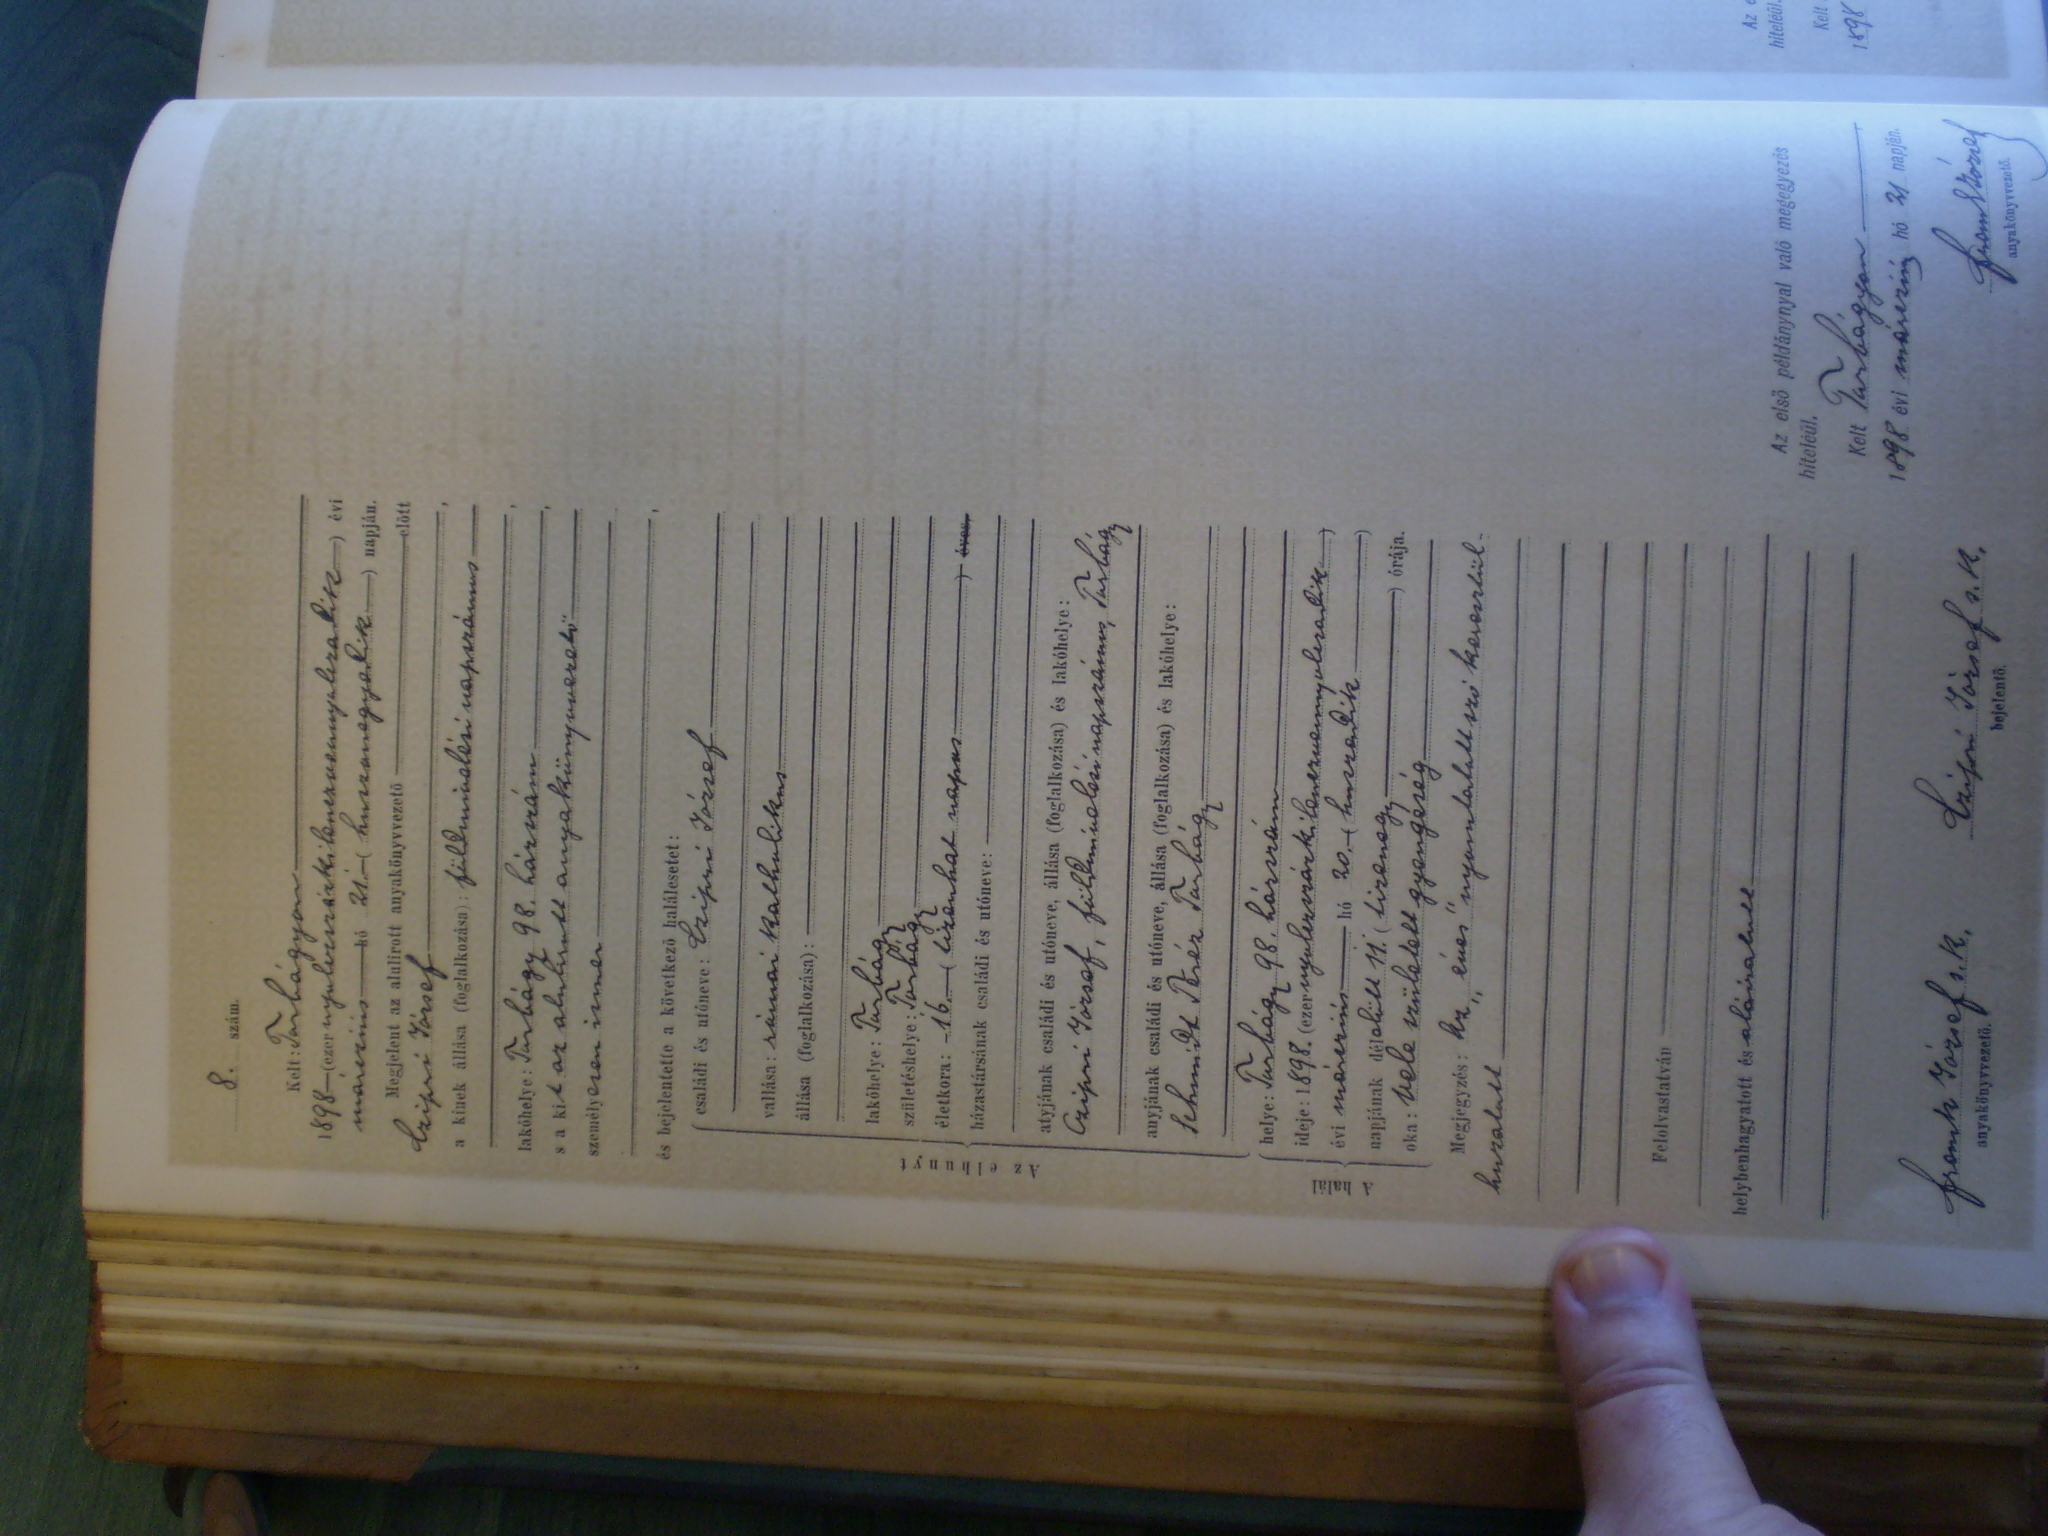 8. szám.
Kelt: Turbágyon
1898 (ezernyolczszázkilenczvennyolczadik) évi
márczius hó 21. (huszonegyedik) napján.
Megjelent az alulirott anyakönyvvezető előtt
Czipri József,
a kinek állása (foglalkozása): földmivelési napszámos
lakóhelye: Turbágy 98. házszám,
s a kit az alulirott anyakönyvvezető
személyesen ismer,
és bejelentette a következő halálesetet:
Az elhunyt
családi és utóneve: Czipri József
vallása: római katholikus
állása (foglalkozása):
lakóhelye: Turbágy
születéshelye: Turbágy
életkora: 16. (tizenhat napos) éves,
házastársának családi és utóneve:
atyjának családi és utóneve, állása (foglalkozása) és lakóhelye:
Czipri József, földmivelési napszámos, Turbágy
anyjának családi és utóneve, állása (foglalkozása) és lakóhelye:
Schmidt Teréz Turbágy
A halál
helye: Turbágy 98. házszám
ideje: 1898. (ezernyolczszázkilenczvennyolczadik)
évi márczius hó 20. (huszadik)
napjának délelőtt 11. (tizenegy) órája.
oka: Vele született gyengeség
Megjegyzés: Az „éves" nyomtatott szó keresztül-
huzatott
Felolvastatván
helybenhagyatott és aláiratott
Frank József s.k.
anyakönyvvezető.
Czipri József s.k.
bejelentő.
Az első példánynyal való megegyezés
hiteléül.
Kelt Turbágyon
1898 évi márczius hó 21 napján.
Frank József
anyakönyvvezető.
Az e
hiteléül.
Kelt
1898